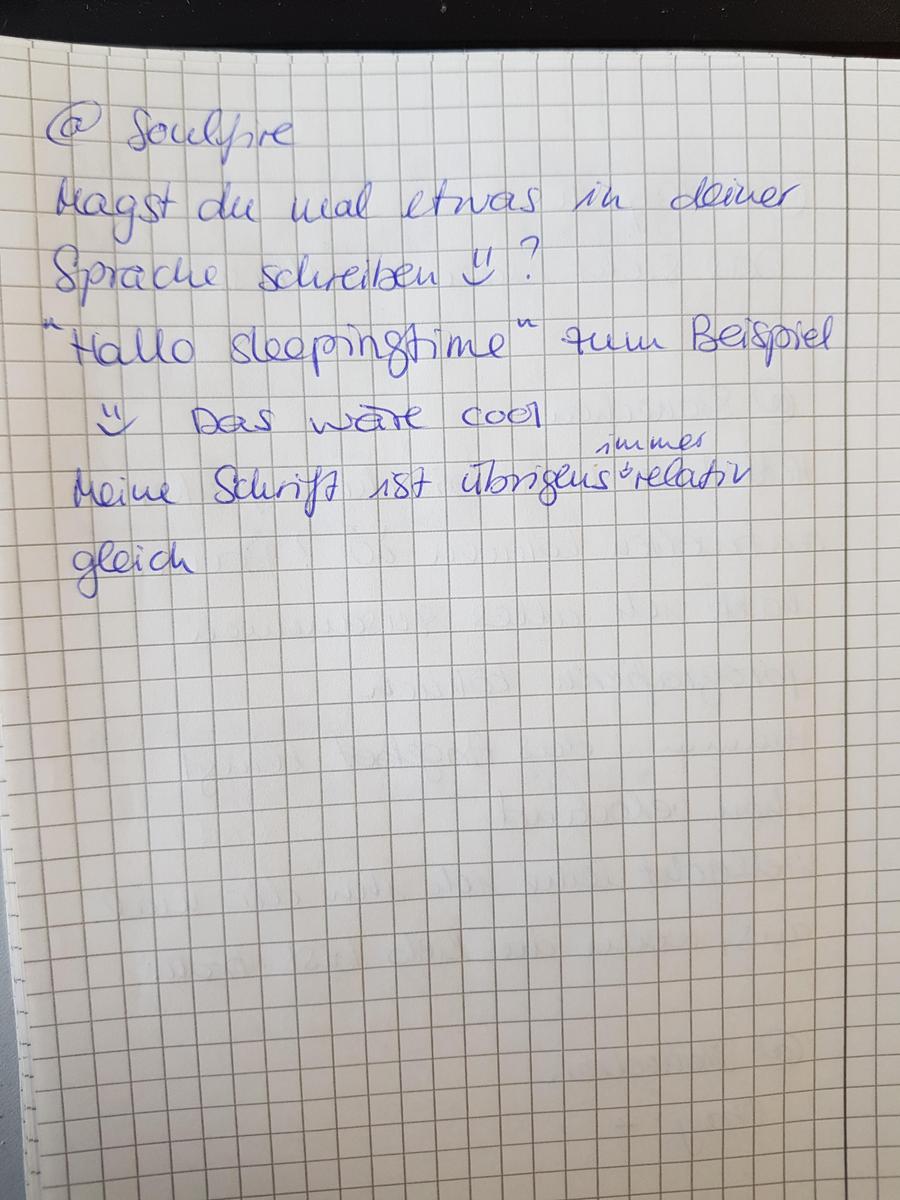 @ Soulfire
Magst du mal etwas in deiner
Sprache schreiben ?
"Hallo sleepingtime" zum Beispiel
Das wäre cool
immer
Meine Schrift ist übrigens relativ
gleich